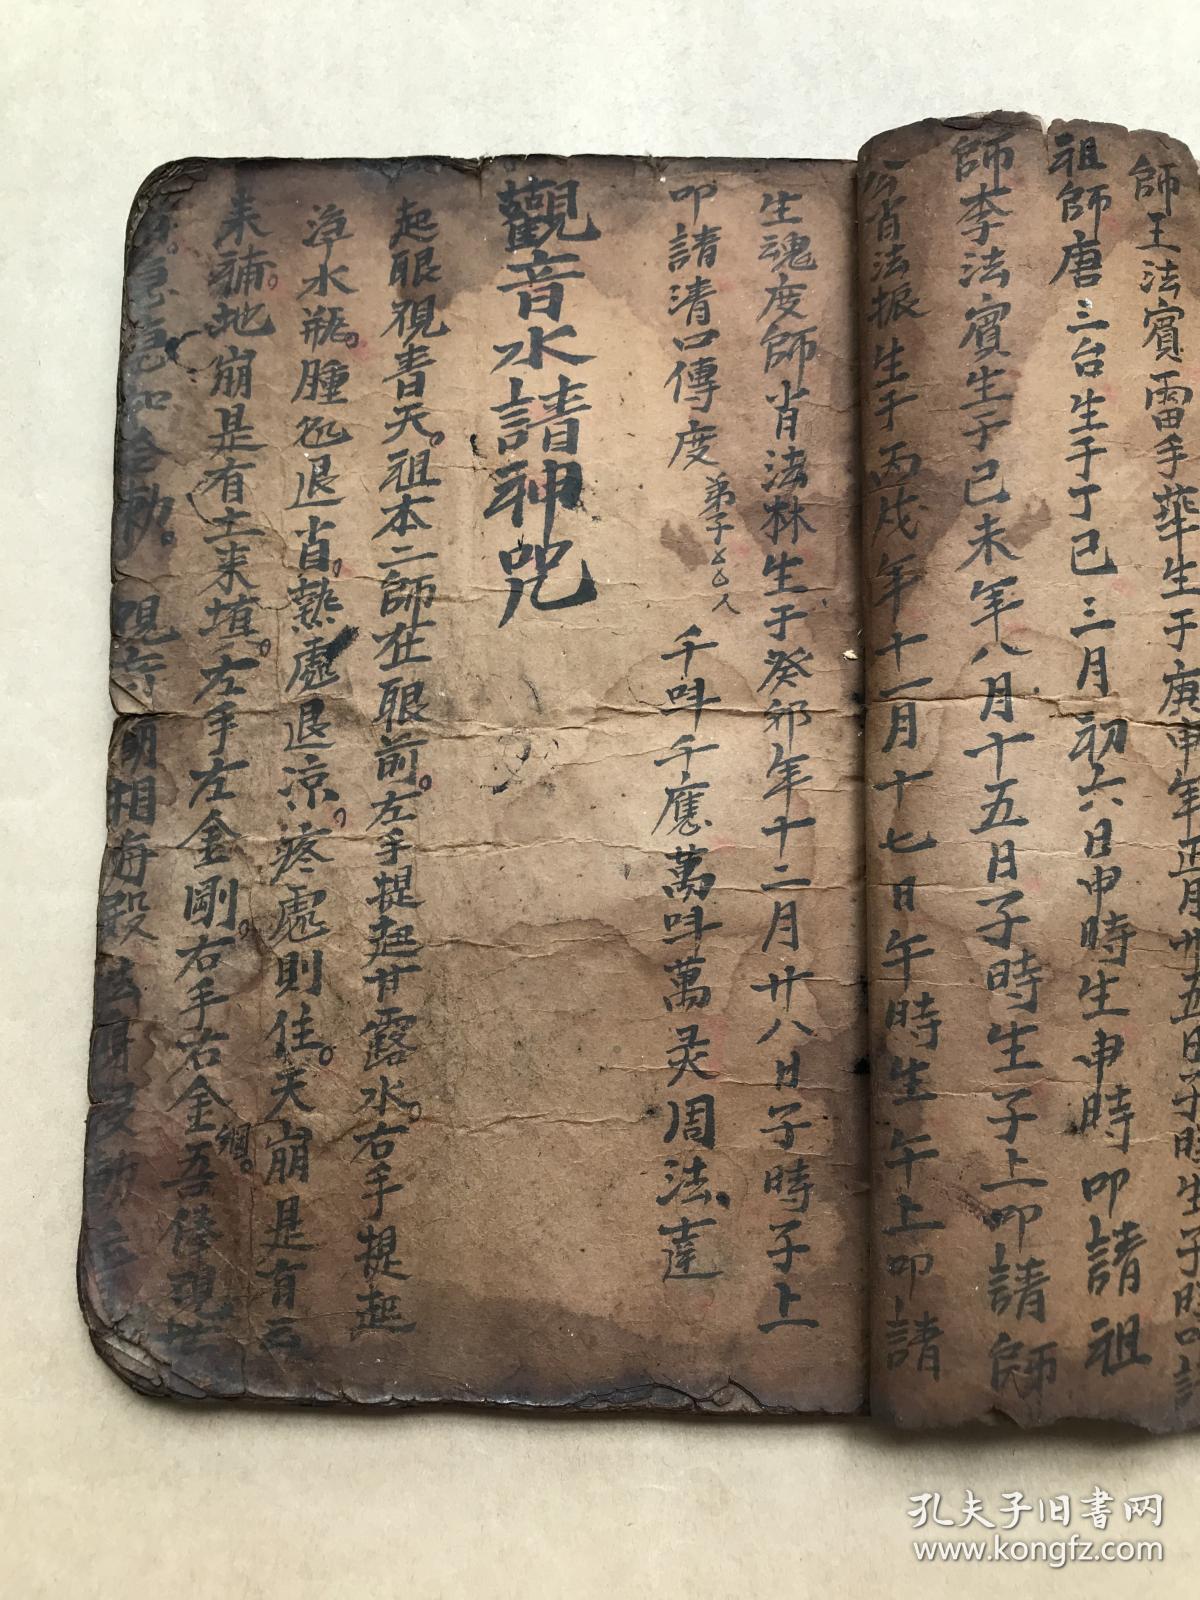 師王法賓雷手華生于庚申年正月卅五日子時生子時叩請
祖師唐三台生于丁巳三月初六日申時生申時叩請祖
師李法賓生于己未年八月十五日子時生子上叩請師
公肖法振生于丙戌年十一月十七日午時生午上叩請
生魂度師肖法林生于癸卯年十二月廿八日子時子上
叩請清口傳度弟子厶厶人千呌千應萬呌萬灵周法達
觀音水請神咒
起眼視青天。祖本二師在眼前。左手提起甘露水。右手提起
净水瓶。腫処退肖。熱處退凉。疼處則住。天崩是有云
来補。地崩是有土来填。左手左金剛。右手右金吾綱。俸現世
急急如令勅。現